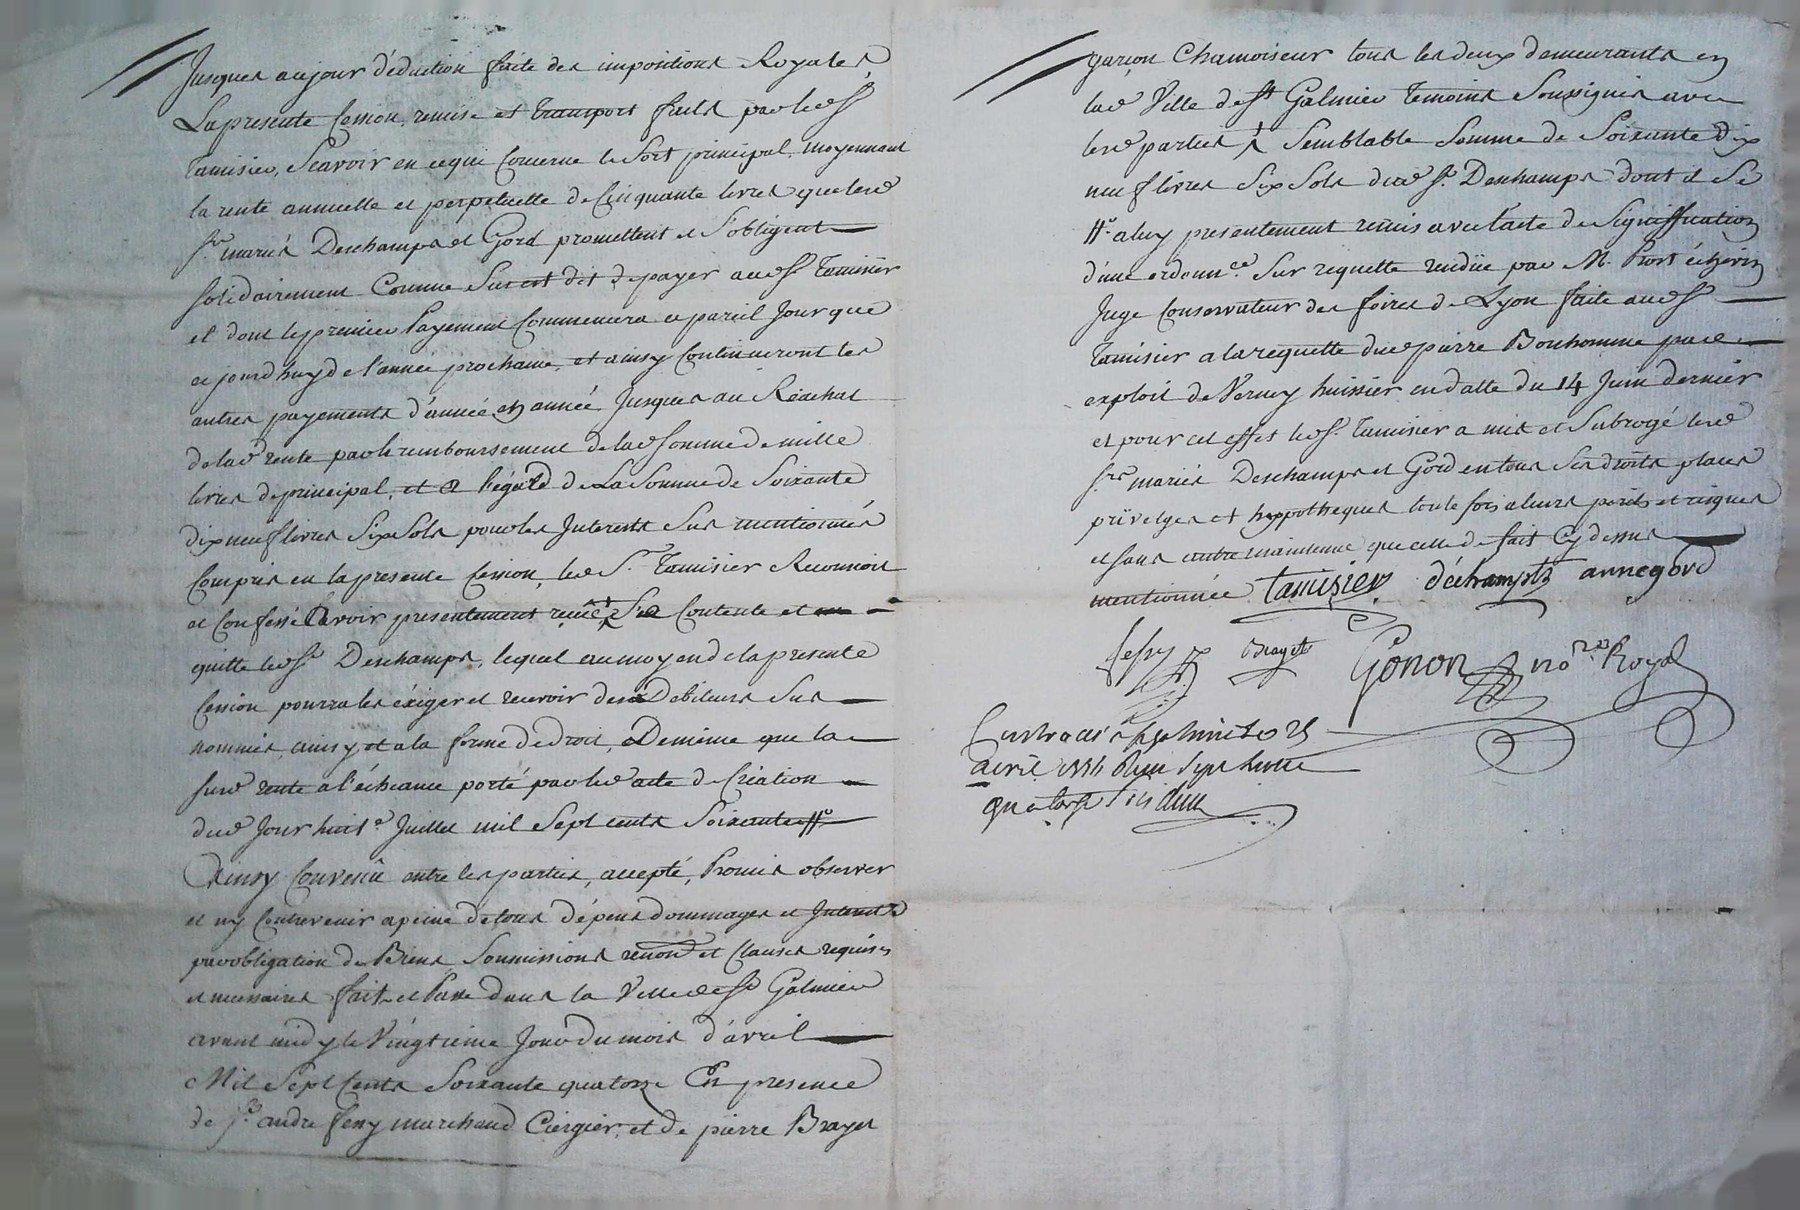 Jusques aujour d'éduction faite des impositions Royales
La presente Cession, remise et transport faits par led. Sr.
Tamisier, Scavoir en cequi Concerne le Sort principal, moyennant
la rente annuelle et perpetuelle de Cinquante livres que lesd.
Srs. mariés Deschamps et Gord promettent et S'obligent
solidairement Comme Sus est dit de payer aud. Sr. Tamisier
et dont le premier Payement Commencera a pareil Jour que
cejourd'huy de l'année prochaine, et ainsy Continueront les
autres payements d'année en année Jusques au Réachat
de lad. rente par le remboursement de lad. Somme de mille
livres de principal, et a l'égard de La Somme de Soixante
dix neuf livres Six Sols pour les Interests Sus mentionnés
Compris en la presente Cession, led. Sr. Tamisier Reconnoit
et Confesse L'avoir presentement Contente et
quitte led. Sr. Deschamps, lequel au moyen de la presente
Cession pourra les éxiger et recevoir des Debiteurs Sus
nommés, ainsy et a la forme de droit, De même que la
susd. rente a l'échéance porté par led. acte de Création
dud. Jour huit Juillet mil Sept cents Soixante
Ainsy Convenû entre les parties, accepté, Promis observer
et ny Contrevenir a peine de tous dépens dommages et Interests
par obligation de Biens Soumissions renond. et Clauses requises
et necessaires fait et Passé dans la Ville de St. Galmier
avant midy le Vingtieme Jour du mois d'avril
Mil Sept Cents Soixante quatorze En presence
de Sr. andre fessy marchand Ciergier, et de pierre Brayet
garçon Chamoiseur tous les deux demeurants en
lad. Ville de St. Galmier Temoins Soussignés avec
lesd. parties Semblable Somme de Soixante dix
neuf livres Six Sols dud. Sr. Deschamps dont il Se
a luy presentement remis avec l'acte de Signiffication
d'une ordonn.ce Sur requette rendüe par M. Prost échevin
Juge Conservateur des foires de Lyon faite aud. Sr.
Tamisier a la requette dud. pierre Bonhomme par
exploit de Verney huissier en datte du 14 Juin dernier
et pour cet effet led. Sr. Tamisier a mis et Subrogé lesd.
Srs. mariés Deschamps et Gord en tous Ses droits places
privelges et hyppotheques toute fois a leurs perils et risques
et sans autre maintenue que celle de fait Cy dessus
mentionnée tamisier déchamps anne gord
fessy Brayet Gonon no.re Royal
avril